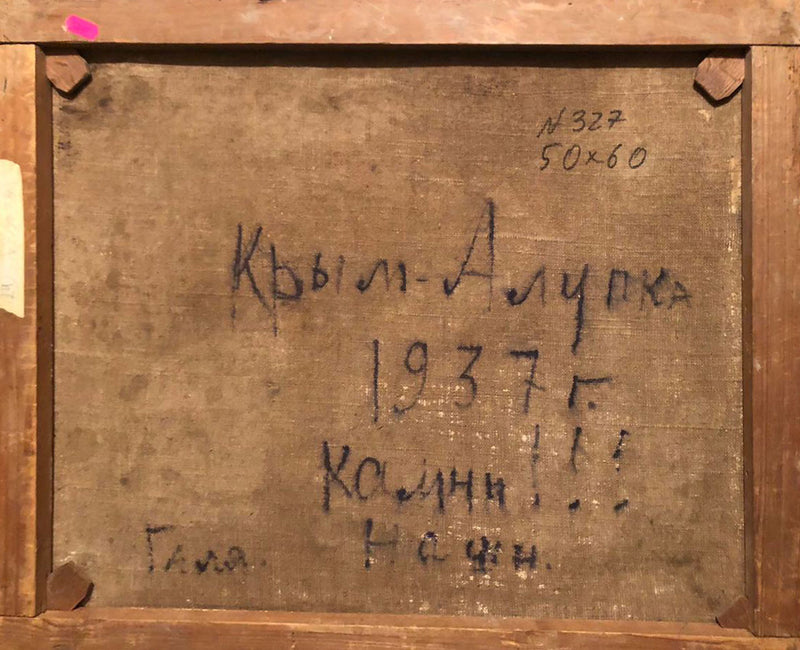 N 327
50×60
Крым-Алупка
1937 г.
Камни!!!
Галя. Наши.